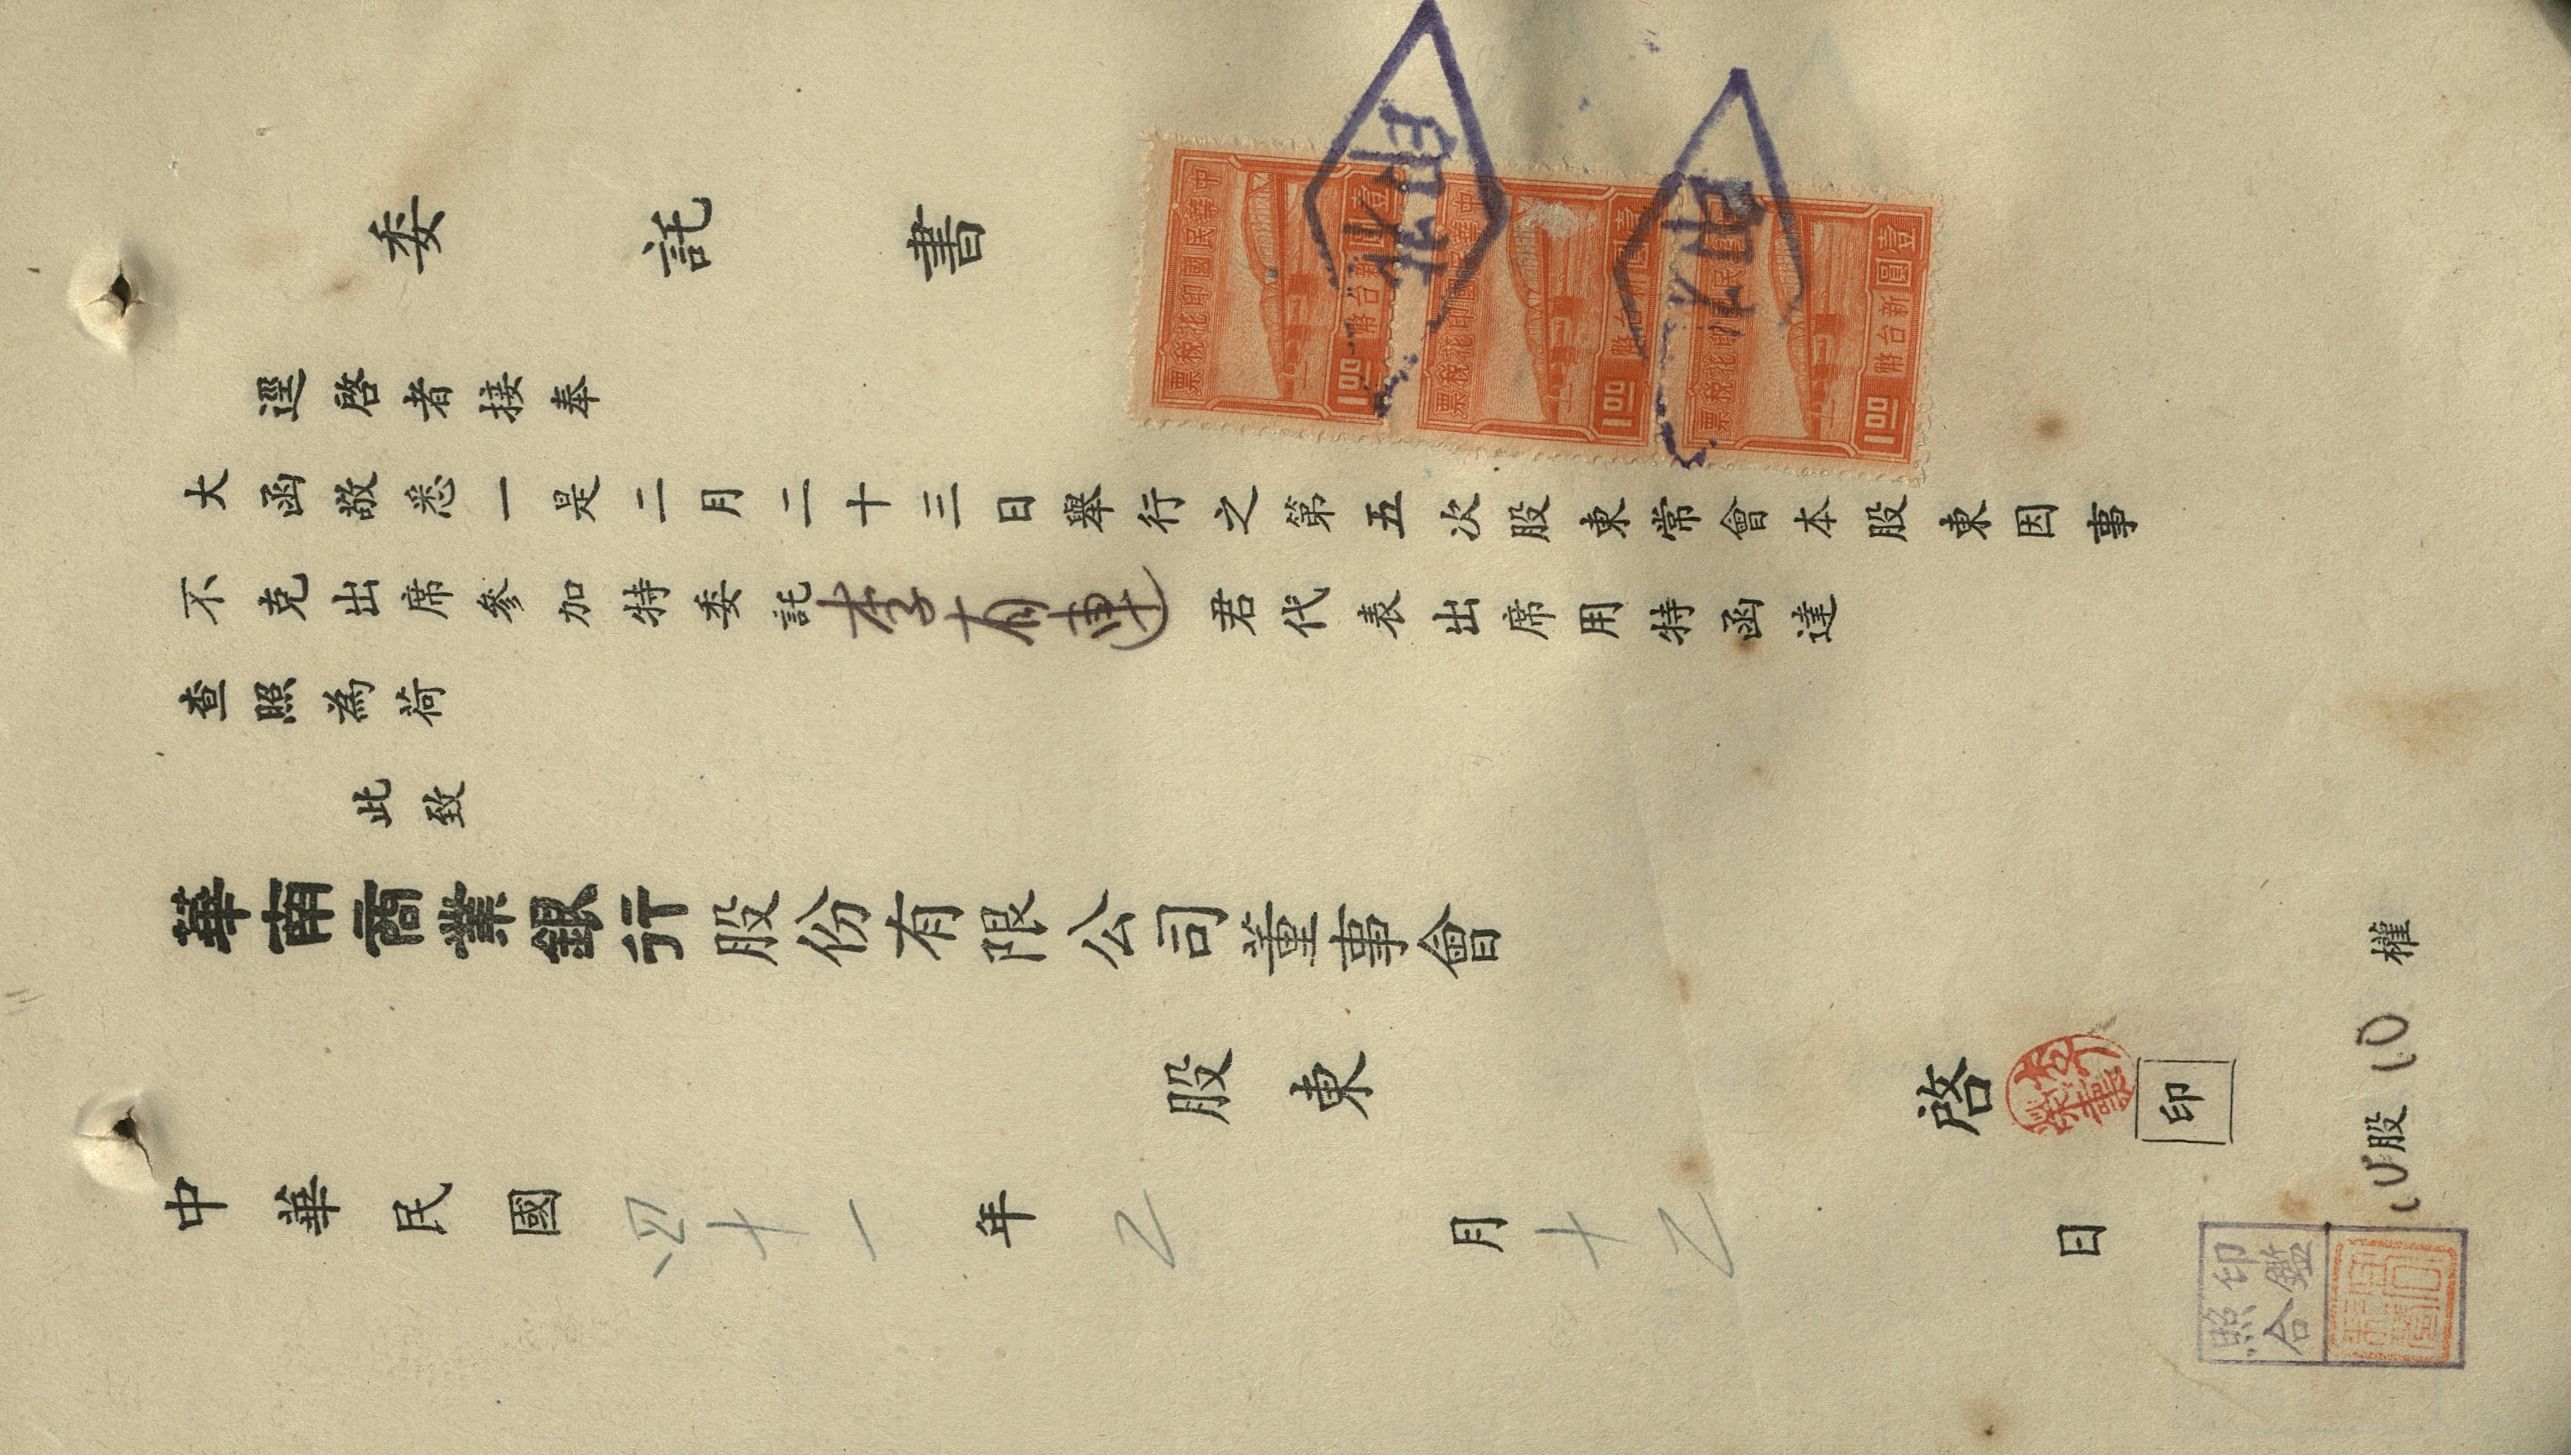 委託書
逕啓者接奉
大函敬悉一是二月二十三日舉行之第五次股東常會本股東因事
不克出席參加特委託李有連君代表出席用特函達
查照為荷
此致
華南商業銀行股份有限公司董事會
股東 啓 印
10股 10權
中華民國四十一年2月十2日
印鑑照合
中華民國印花稅票
壹圓
新台幣
1.00
中華民國印花稅票
壹圓
新台幣
1.00
中華民國印花稅票
壹圓
新台幣
1.00